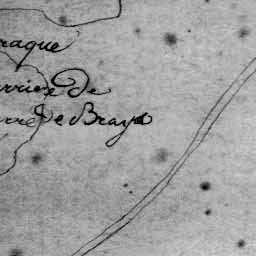 raque
rriere de
rre de Brays